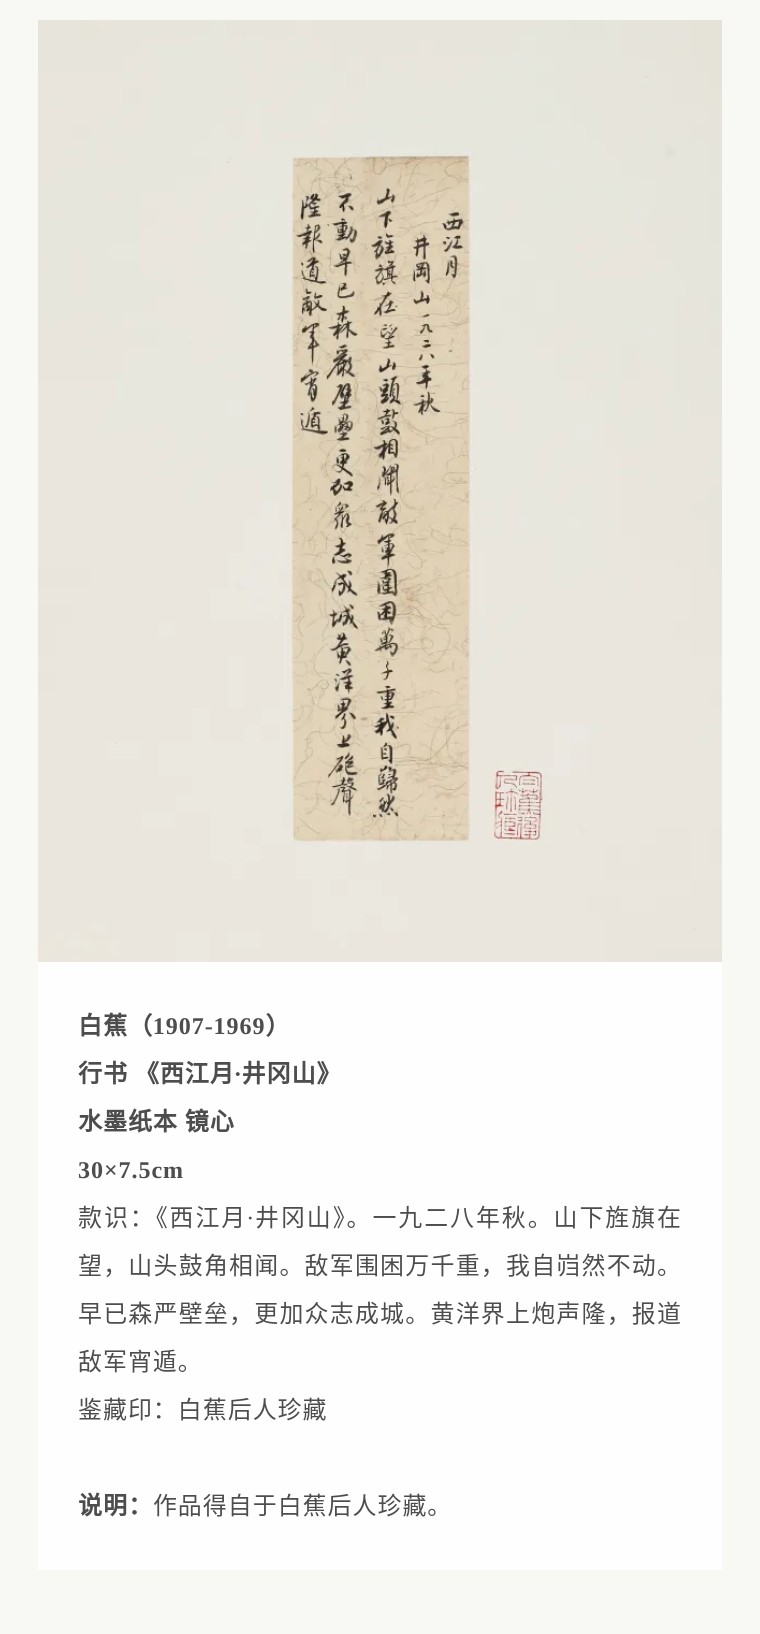 西江月
井岡山一九二八年秋
山下旌旗在望山頭鼓相聞敵軍圍困萬千重我自巋然
不動早已森嚴壁壘更加衆志成城黃洋界上砲聲
隆報道敵軍宵遁
白蕉後
人珍藏
白蕉（1907-1969）
行书 《西江月·井冈山》
水墨纸本 镜心
30×7.5cm
款识：《西江月·井冈山》。一九二八年秋。山下旌旗在
望，山头鼓角相闻。敌军围困万千重，我自岿然不动。
早已森严壁垒，更加众志成城。黄洋界上炮声隆，报道
敌军宵遁。
鉴藏印：白蕉后人珍藏
说明：作品得自于白蕉后人珍藏。